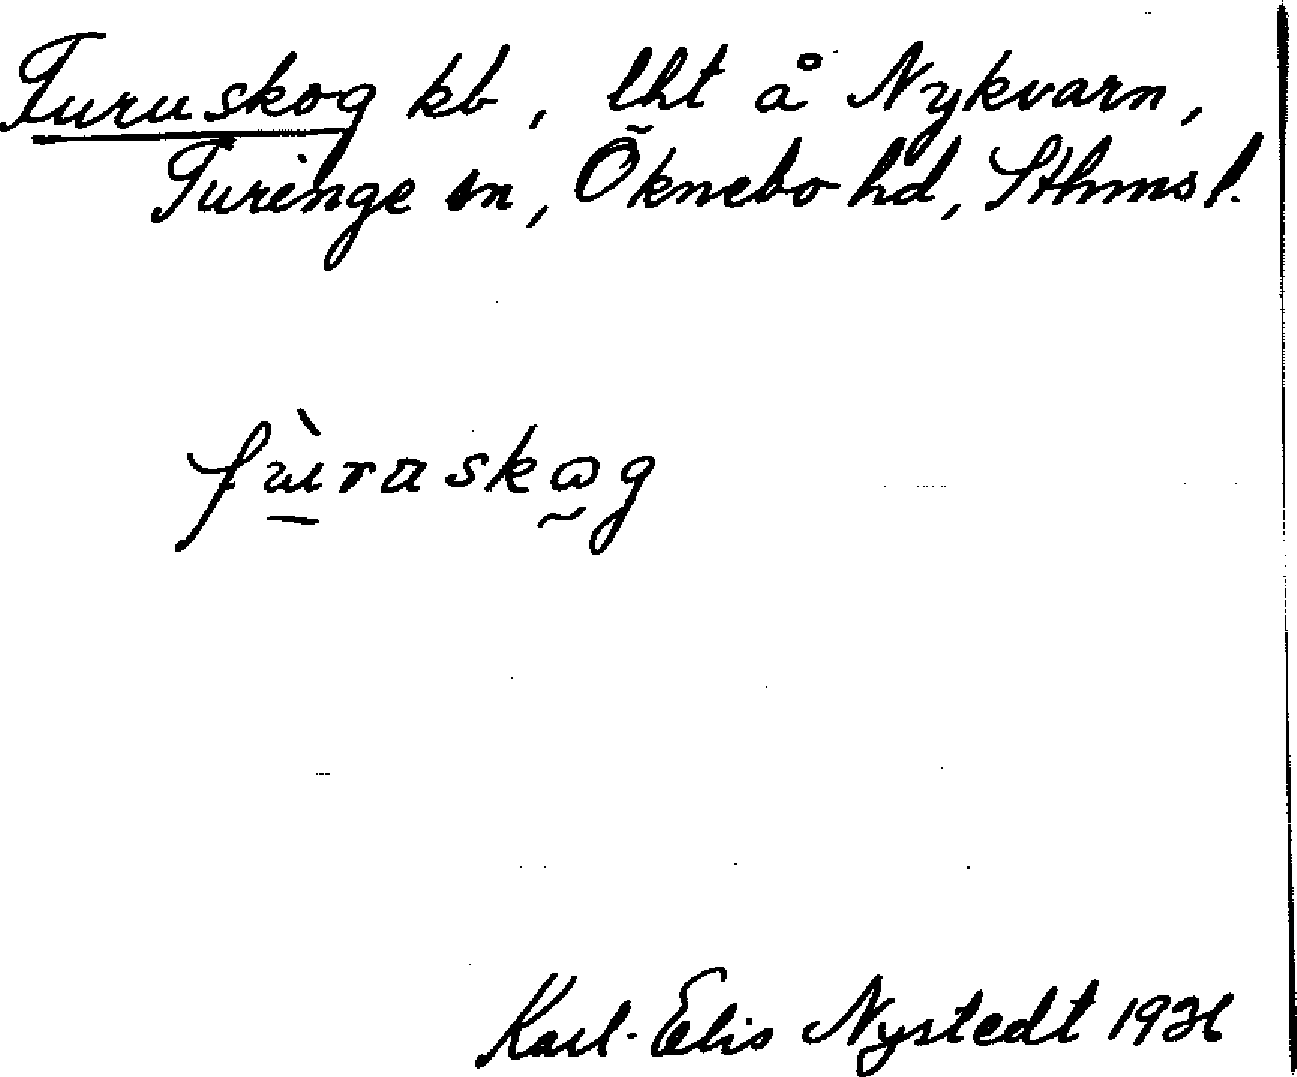 Furuskog kb, lht å Nykvarn,
Turinge sn, Öknebo hd, Sthms l.
fùraskog
Karl-Elis Nystedt 1936